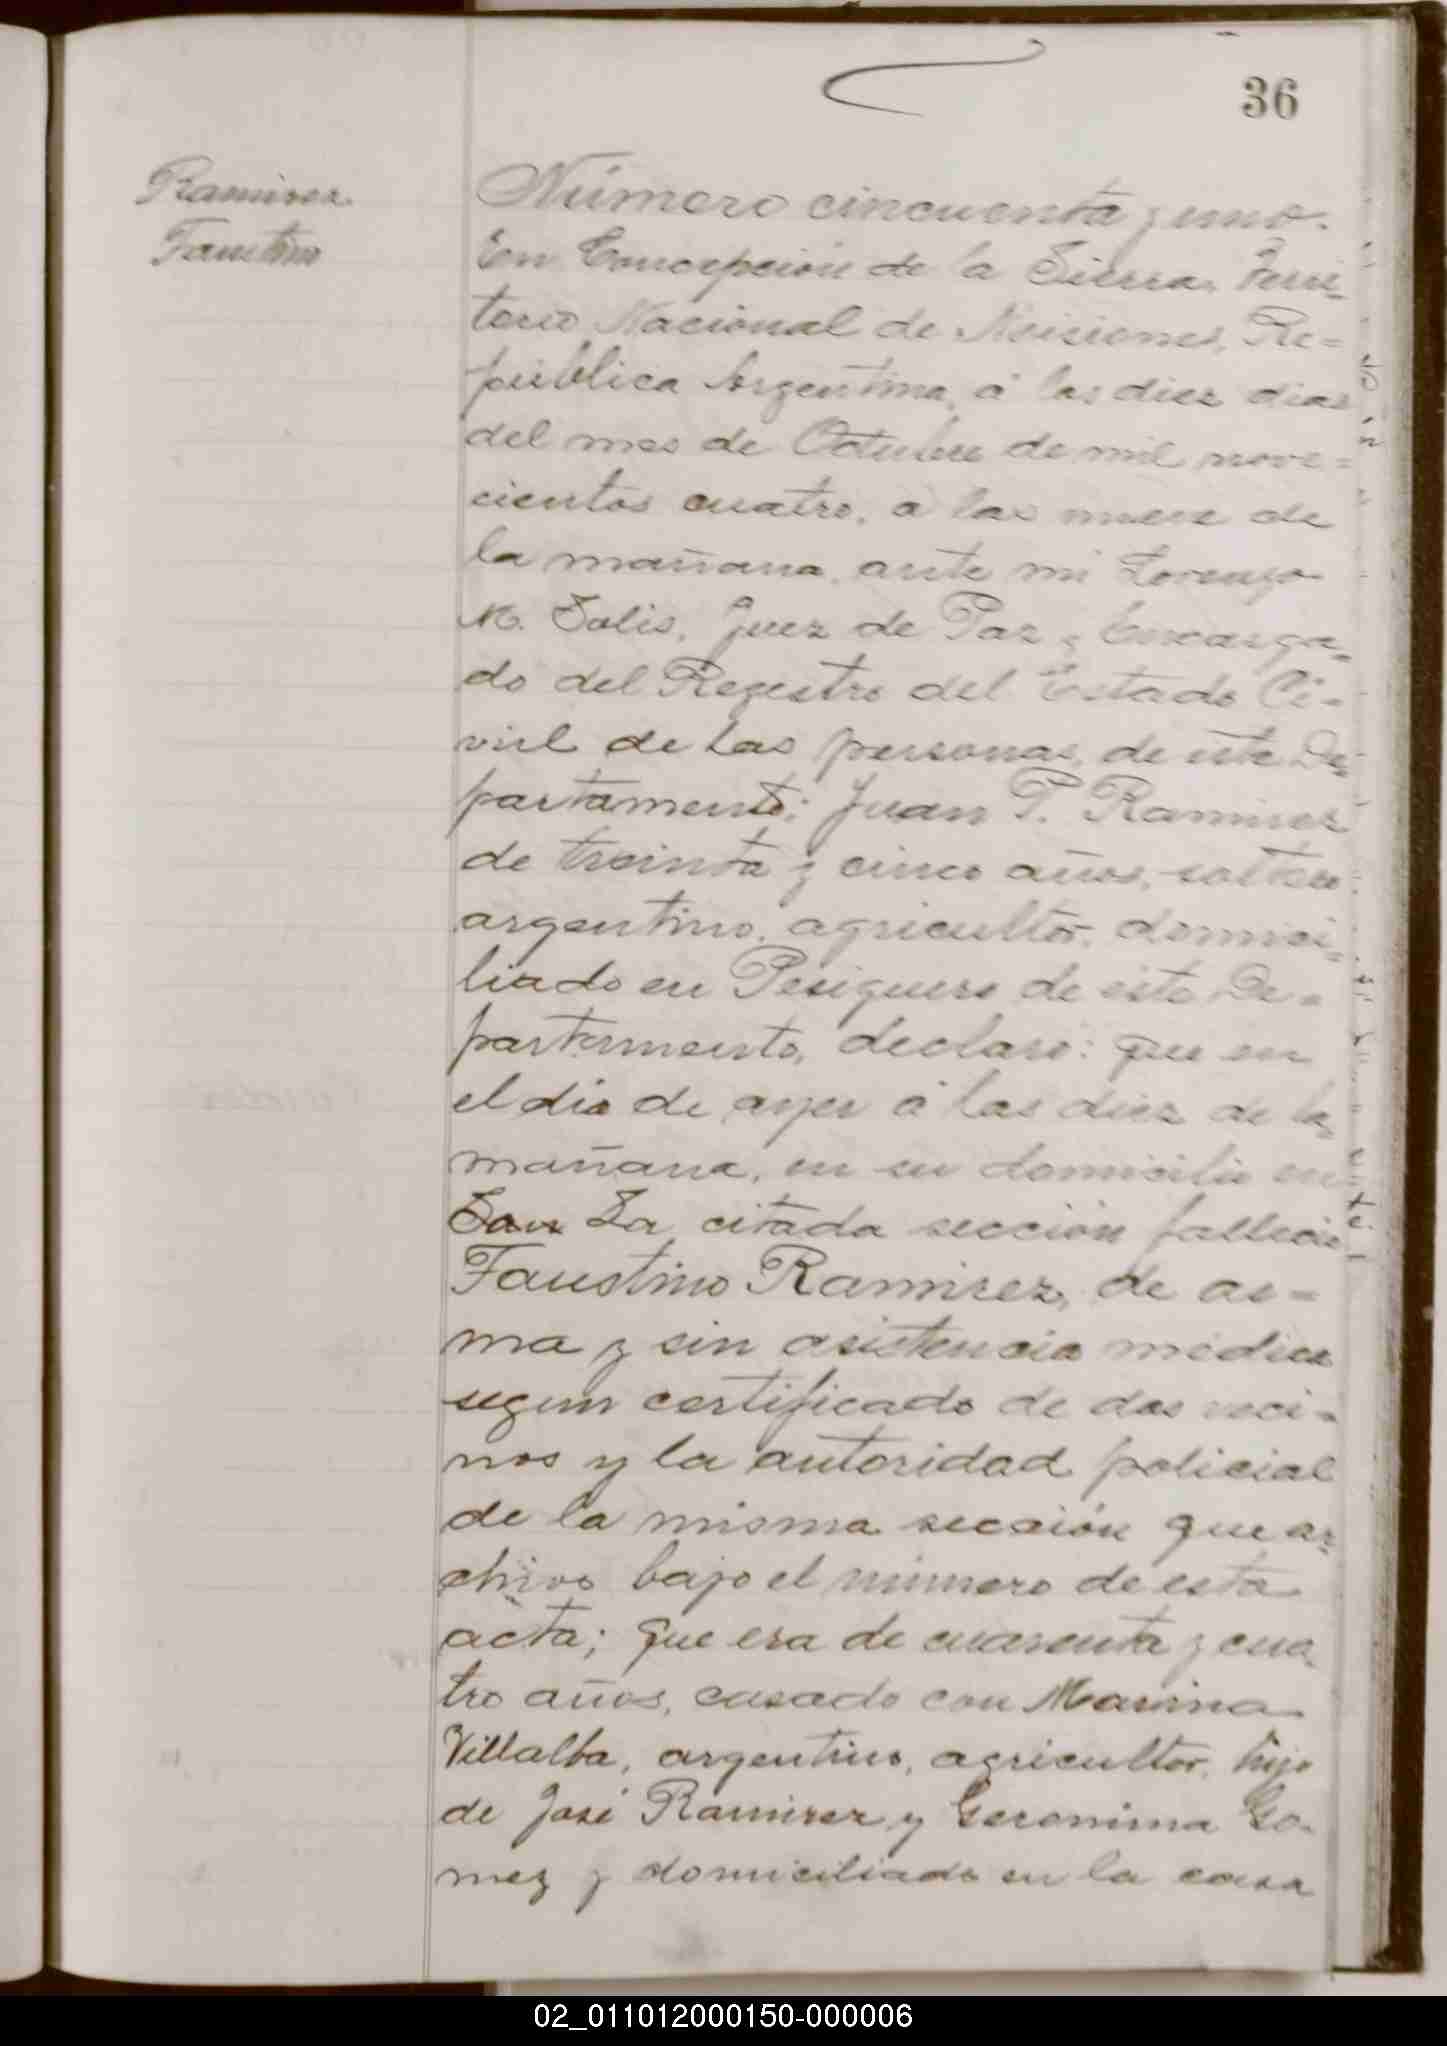 36
Ramirez
Faustino
Número cincuenta y uno.
En Concepción de la Sierra, Terri-
torio Nacional de Misiones, Re=
pública Argentina, á los diez dias
del mes de Octubre de mil nove=
cientos cuatro, a las nueve de
la mañana, ante mi Lorenzo
M. Solis, Juez de Paz y Encarga-
do del Registro del Estado Ci-
vil de las personas, de este De-
partamento; Juan P. Ramirez
de treinta y cinco años, soltero
argentino, agricultor, domici-
liado en Pesiguero de este De-
partamento, declaró: que en
el dia de ayer á las diez de la
mañana, en su domicilio en
San La citada sección falleció
Faustino Ramirez, de as-
ma y sin asistencia médica
segun certificado de dos veci-
nos y la autoridad policial
de la misma sección que ar-
chivo bajo el número de esta
acta; que era de cuarenta y cua
tro años, casado con Marina
Villalba, argentino, agricultor, hijo
de José Ramirez y Geronima Go-
mez y domiciliado en la casa
02_011012000150-000006